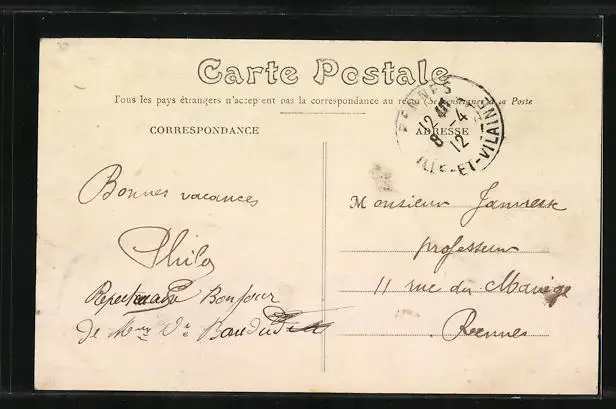 Carte Postale
Tous les pays étrangers n'acceptent pas la correspondance au recto (Se renseigner à la Poste
CORRESPONDANCE
ADRESSE
RENNES
12 40
8 - 4
12
ILLE-ET-VILAINE
Bonnes vacances
Monsieur
professeur
11 rue du Manège
Rennes
Bonjour
de Mme Vve